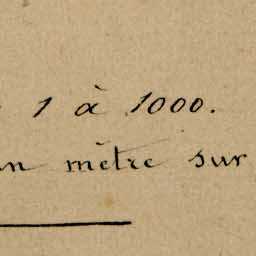 1 à 1000.
un mètre sur